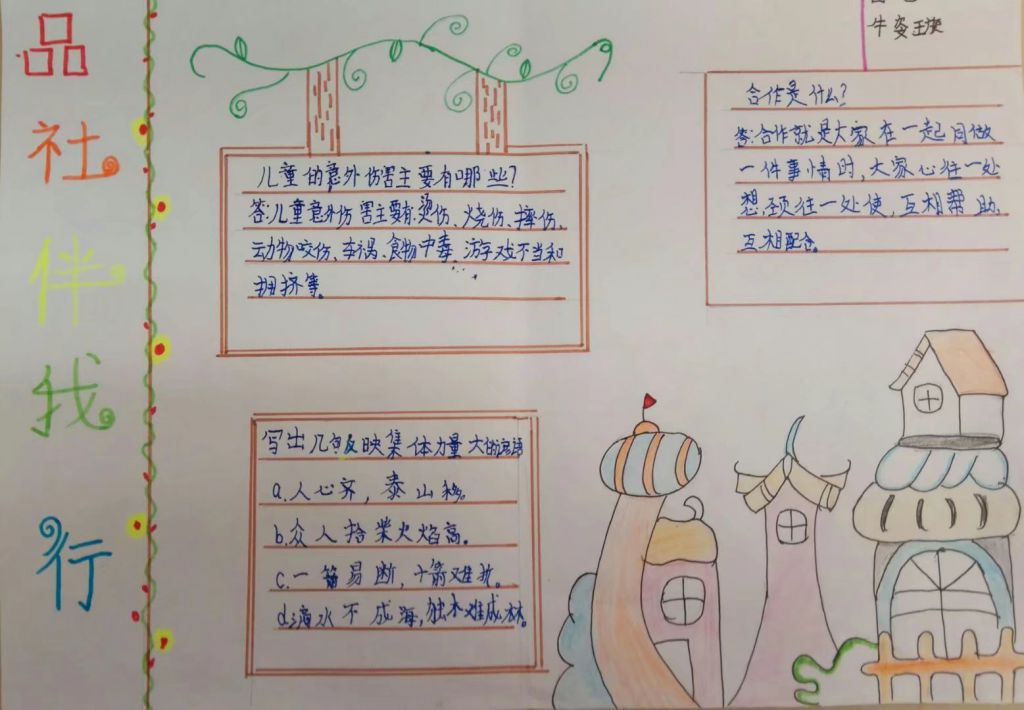 品社伴我行
牛姿琪
儿童的意外伤害主要有哪些?
答:儿童意外伤害主要有:烫伤、烧伤、摔伤、
动物咬伤、车祸、食物中毒、游戏不当和
拥挤等。
合作是什么?
答:合作就是大家在一起同做
一件事情时,大家心往一处
想,颈往一处使,互相帮助,
互相配合。
写出几句反映集体力量大的谚语
a.人心齐,泰山移。
b.众人拾柴火焰高。
c.一箭易断,十箭难折。
d.滴水不成海,独木难成林。